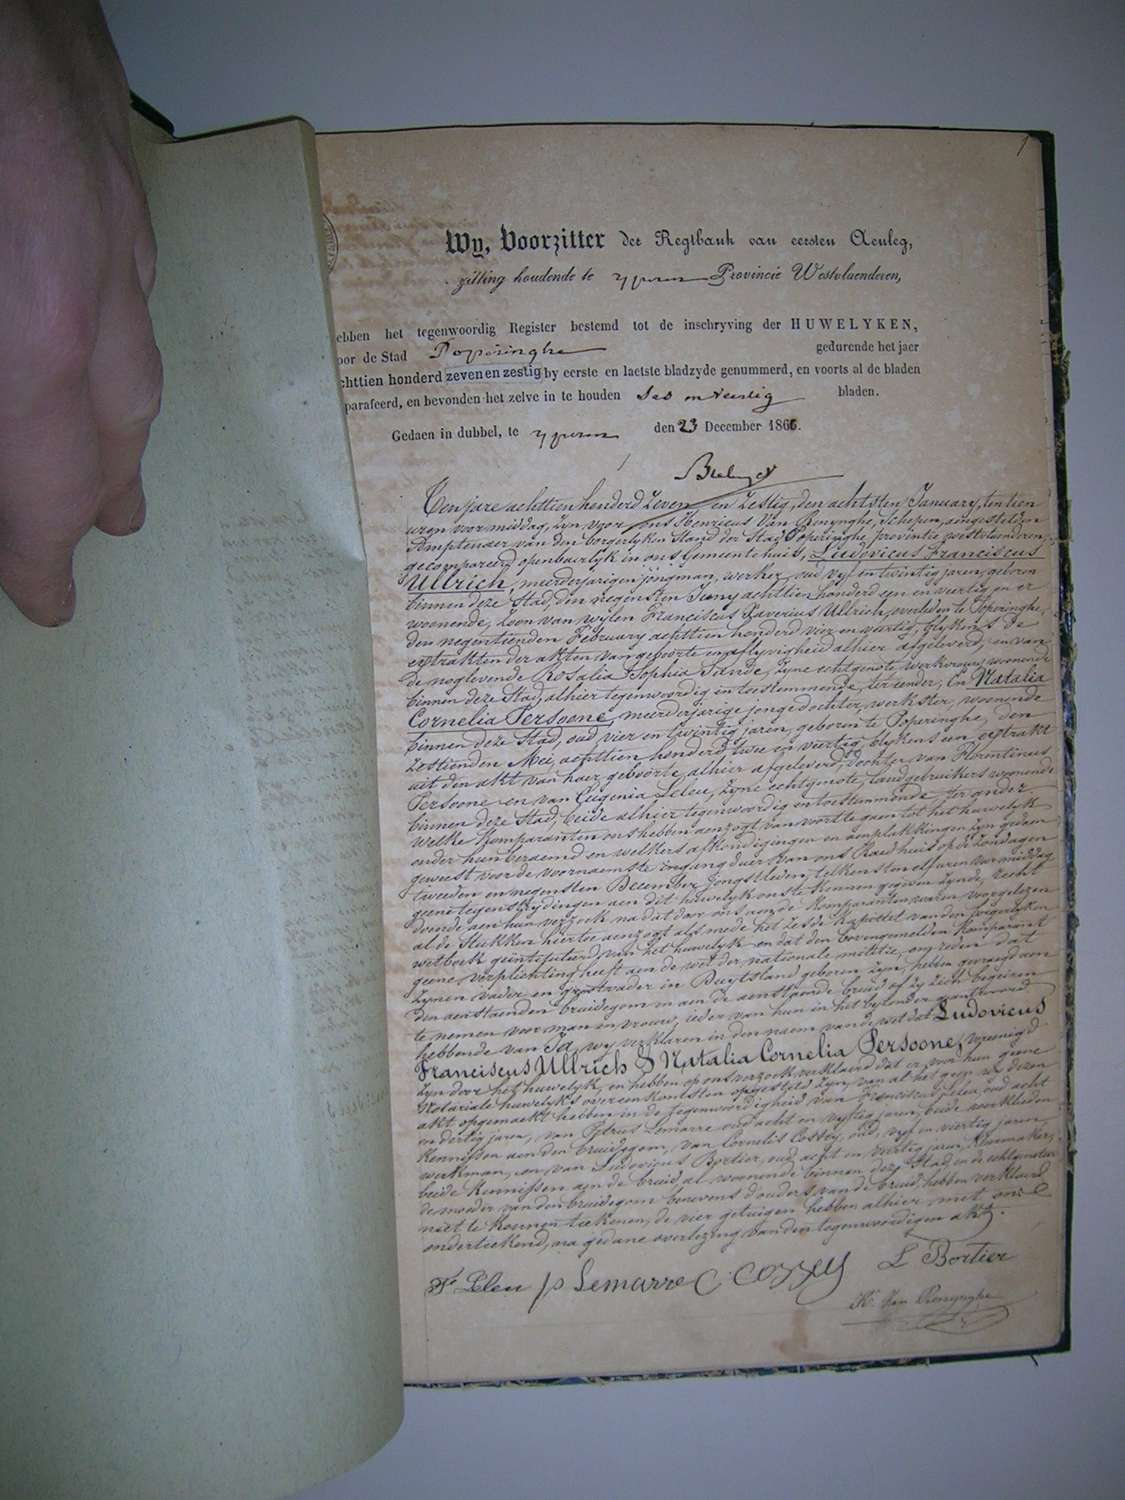 1
Wy, Voorzitter der Regtbank van eersten Aenleg,
zitting houdende te yperen Provincie Westvlaenderen,
ebben het tegenwoordig Register bestemd tot de inschryving der HUWELYKEN,
oor de Stad Poperinghe gedurende het jaer
chttien honderd zeven en zestig by eerste en laetste bladzyde genummerd, en voorts al de bladen
parafeerd, en bevonden het zelve in te houden ses en veertig bladen.
Gedaen in dubbel, te yperen den 23 December 1866.
Ten jare achttien honderd zeven en zestig, den achtsten January, ten tien
uren voormiddag, zyn voor ons Henricus Van Renynghe, schepen, aengestelden
Amptenaer van den borgerlyken stand der Stad Poperinghe, provintie westvlaenderen,
gecompareerd openbaerlyk in ons Gemeentehuis, Ludovicus Franciscus
Ullrich, meerderjarigen jongman, werker, oud vyf en twintig jaren, geboren
binnen deze Stad, den negensten Juny achttien honderd een en veertig en er
woonende, zoon van wylen Franciscus Xaverius Ullrich, overleden te Poperinghe,
den negentienden February achttien honderd vier en veertig, blykens de
extrakten der akten van geboorte en aflyvigheid alhier afgeleverd, en van
de noglevende Rosalia Sophia Sande, zyne echtgenote, werkvrouw, woonende
binnen deze Stad, alhier tegenwoordig en toestemmende, ter eender; En Natalia
Cornelia Persoone, meerderjarige jonge dochter, werkster, woonende
binnen deze Stad, oud vier en twintig jaren, geboren te Poperinghe, den
zestienden Mei, achttien honderd twee en veertig, blykens een extrakt
uit den akt van haer geboorte, alhier afgeleverd, dochter van Florentinus
Persoone en van Eugenia Leleu, zyne echtgenote, landgebruikers woonende
binnen deze Stad, beide alhier tegenwoordig en toestemmende, ter ander
welke komparanten ons hebben aenzogt van voort te gaen tot het huwelyk
onder hun beraemd en welkers afkondigingen en aenplakkingen zyn gedaen
geweest voor de voornaemste ingang duer van ons Raedhuis op de zondagen
tweeden en negensten December jongstleden, telkens ten elf uren voormiddag
geene tegenstrydingen aen dit huwelyk ons te kennen gegeven zynde, recht
doende aen hun verzoek na dat door ons aen de komparanten waren voorgelezen
al de stukken hiertoe aenzogt als mede het zesde kapittel van den borgerlyken
wetboek geintituleerd van het huwelyk en dat den bovengemelden komparant
geene verplichting heeft aen de wet der nationale militie, om reden dat
zynen vader en grootvader in Duytsland geboren zyn, hebben gevraegd aen
den aenstaenden bruidegom en aen de aenstaende bruid of zy zich begeeren
te nemen voor man en vrouw, ieder van hun in het byzonder geantwoord
hebbende van Ja, wy verklaren in den naem van de wet dat Ludovicus
Franciscus Ullrich & Natalia Cornelia Persoone, vereenigd
zyn door het huwelyk, en hebben op ons verzoek verklaerd dat er voor hun geene
Notariale huwelyks overeenkomsten opgesteld zyn, van al het geen wy dezen
akt opgemaekt hebben in de tegenwoordigheid van Franciscus Leleu oud acht
en dertig jaren, van Petrus Lemarre oud acht en vyftig jaren, beide werklieden
kennissen aen den bruidegom, van Cornelis Cossey, oud vyf en veertig jaren
werkman, en van Ludovicus Bortier, oud acht en veertig jaren,
beide kennissen aen de bruid al woonende binnen deze Stad, en de echtgenoten
de moeder van den bruidegom benevens d'ouders van de bruid hebben verklaerd
niet te konnen teekenen, de vier getuigen hebben alhier met ons
onderteekend, na gedane overlezing van den tegenwoordigen akt.
Fs Leleu p Lemarre C. Cossey L Bortier
H. Van Renynghe